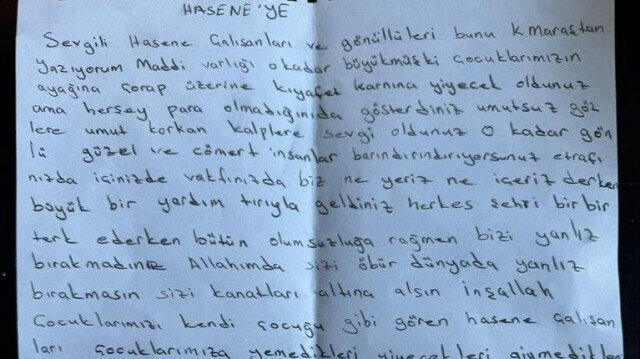 HASENE'YE
Sevgili Hasene Çalısanları ve gönüllüleri bunu K maraştan
yazıyorum Maddi varlığı o kadar büyükmüşki çocuklarımızın
ayağına çorap üzerine kıyafet karnına yiyecek oldunuz
ama herşey para olmadığınıda gösterdiniz umutsuz göz
lere umut korkan kalplere sevgi oldunuz o kadar gön
lü güzel ve cömert insanlar barındırındırıyorsunuz etrafı
nızda içinizde vakfınızda biz ne yeriz ne içeriz derken
büyük bir yardım tırıyla geldiniz herkes şehri bir bir
terk ederken bütün olumsuzluğa rağmen bizi yanlız
bırakmadınız Allahımda sizi öbür dünyada yanlız
bırakmasın sizi kanatları altına alsın inşallah
Çocuklarımızı kendi çocuğu gibi gören hasene çalışan
ları çocuklarımıza yemedikleri yiyecekleri giymedikler